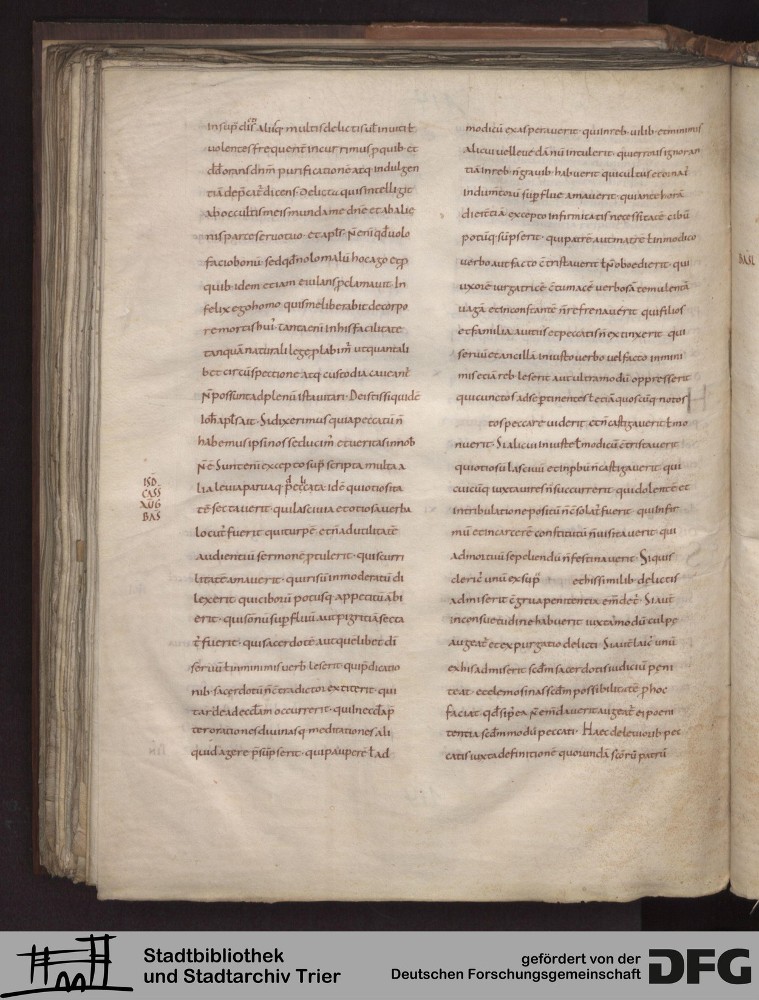 uolentes frequent incurrimus p quib et
ddorans dnm purificatione atq indulgen
tiā dep̄cat dicens Delicta quis intellegit
ab occultis meis munda me dn̄e et ab alie
nis parce seruo tuo et apls N̄ enī qd uolo
facio bonū sed qd nolo malū hoc ago et p
quib idem etiam eiulans p̄clamauit In
felix ego homo quis me liberabit de corpo
re mortis hui tanta enī in his facilitate
tanquā naturali lege plabim̄ ut quantali
bet circūspectione atq custodia caueant
N̄ possunt ad plenū ista uitari De istis siquidē
Ioh apls ait Si dixerimus quia peccatū n̄
habemus ipsi nos seducim̄ et ueritas in nob
N̄ ē Sunt enī excepto sup̄ scripta multa a
lia leuia parua q peccata idē qui otiosita
ISD
CASS
AUG
BAS
tē sectauerit qui lasciuia et otiosa uerba
locut fuerit qui turpē et n̄ ad utilitatē
audientiū sermonē ptulerit qui scurri
litatē amauerit qui risū inmoderatū di
lexerit qui ciborū potusq appetitū abi
erit qui somnū supfluū aut pigritiā secta
t fuerit qui sacerdotē aut quelibet dī
seruū t in minimis uerb leserit qui p̄dicatio
nib sacerdotū n̄ ctradictor extiterit qui
tarde ad eccl̄am occurrerit qui in eccl̄a p̄
ter orationes diuinasq meditationes ali
quid agere p̄sūpserit qui paupere t ad
modicū exasperauerit qui in reb uilib et minimis
alicui uelle ue dānū intulerit qui erroris ignoran
tiā in reb n̄ grauib habuerit qui cultus et ornat
indumtorū supflue amauerit qui ante horā
dietētiā excepto infirmitatis necessitatē cibū
potūq sūpserit qui patrē aut matrē t in modico
uerbo aut facto ctristauerit t n̄ oboedierit qui
uxorē iurgatricē ctumacē uerbosā temulentā
uagā et inconstantē n̄ refrenauerit qui filios
et familia a uitiis et peccatis n̄ extinxerit qui
seruū et ancillā iniusto uerbo uel facto in mini
mis etiā reb leserit aut ultra modū oppresserit
qui cunctos ad se p̄tinentes t etiā quoscūq notos
tos peccare uiderit et n̄ castigauerit t mo
nuerit Si alicui iniuste t modicū ctristauerit
qui otiosū lasciuū et inpbū n̄ castigauerit qui
cuicūq iuxta uires n̄ succurrerit qui dolentē et
in tribulatione positū n̄ csolat fuerit qui infir
mū et in carcerē constitutū n̄ uisitauerit qui
ad mortuū sepeliendū n̄ festinauerit Si quis
cleric unū ex sup et his similib delictis
admiserit cgrua penitentia emdet Si aut
in consuetudine habuerit iuxta modū culpe
augeat et expurgatio delicti Si aut laic unū
ex his admiserit scdm sacerdotis iudiciū peni
teat et elemosinas scdm possibilitatē p hoc
faciat qd si p ea n̄ emdauerit augeat ei peni
tentia scdm modū peccati Haec de leuiorib pec
catis iuxta definitionē quorundā scōrū patrū
BASL
Stadtbibliothek
und Stadtarchiv Trier
gefördert von der
Deutschen Forschungsgemeinschaft
DFG